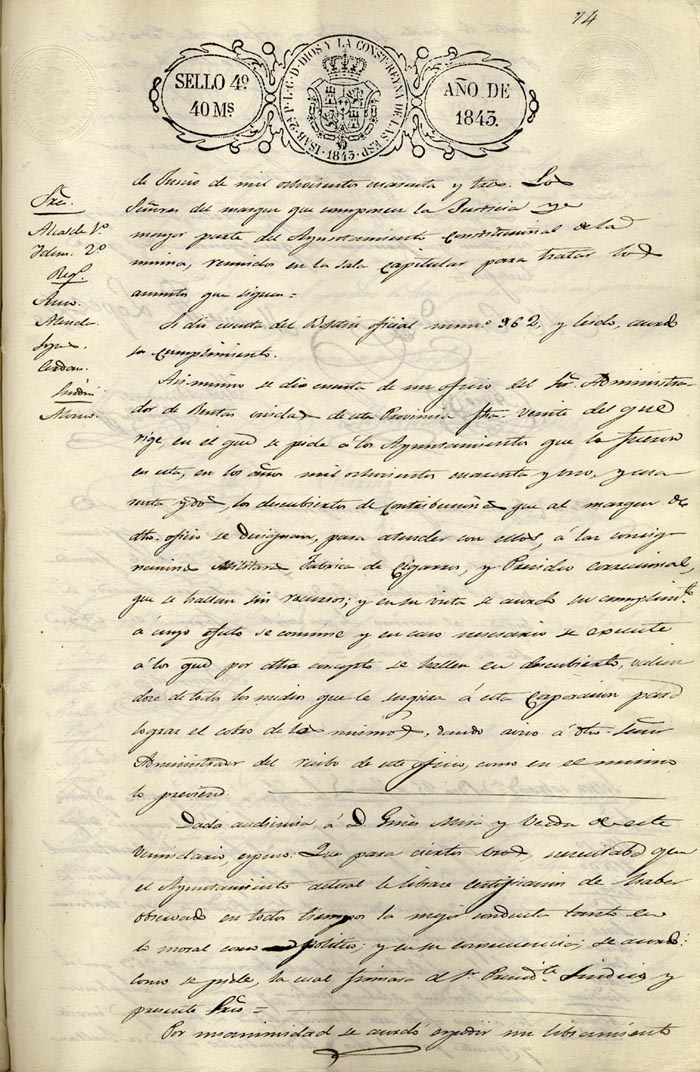 74
SELLO 4º
40 Ms
ISAB. 2ª P. L. G. D. DIOS Y LA CONST. REYNA DE LAS ESP. 1843.
AÑO DE
1843.
Alcalde 1º
Idem. 2º
Reg.
Síndico
Alonso
de mil ochocientos cuarenta y tres. Los
Señores del margen que componen la Justicia y
mayor parte del Ayuntamiento Constitucional de la
misma, reunidos en la sala capitular para tratar los
asuntos que siguen =
Se dio cuenta del Boletin oficial numº 962, y leido, acordó
su cumplimiento.
Asimismo se dio cuenta de un oficio del Sr. Administra-
dor de Rentas unidas de esta Provincia fha. veinte del que
rige, en el que se pide á los Ayuntamientos que lo fueron
en esta, en los años mil ochocientos cuarenta y uno, y cua
renta y dos, los descubiertos de contribuciones que al margen de
dho. oficio se designan, para atender con ellos, á las consig
naciones Militares, Fabrica de Cigarros, y Presidio correccional,
que se hallan sin recursos; y en su vista se acordó su cumplimto.
á cuyo efecto se conmine y en caso necesario se execute
á los que por otro concepto se hallen en descubierto, valien
dose de todos los medios que le sugiera á esta Corporacion para
lograr el cobro de los mismos, dando aviso á dho. Señor
Administrador del recibo de este oficio, como en el mismo
lo previene.
Dada audiencia á D. Gines Mira y Verda de este
vecindario, espuso: Que para ciertos usos, necesitaba que
el Ayuntamiento actual le librase certificacion de haber
observado en todos tiempos la mejor conducta tanto en
lo moral como politico; y en su consecuencia, se acordó:
como se pide, la cual firmara el Sr. Presidte. Sindico y
presente Srio =
Por unanimidad se acordó expedir un libramiento